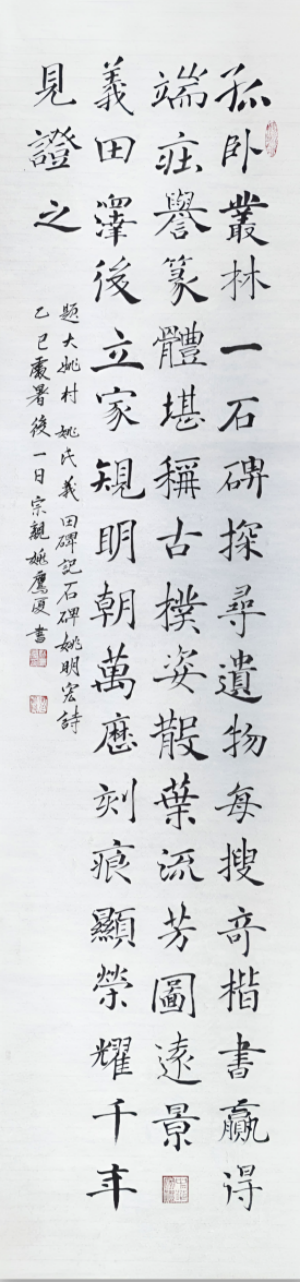 孤卧叢林一石碑探尋遺物每搜奇楷書贏得
端庄譽篆體堪稱古樸姿散葉流芳圖遠景
義田澤後立家規明朝萬歷刻痕顯榮耀千年
見證之
題大姚村姚氏義田碑記石碑姚明宏詩
乙巳處暑後一日宗親姚鷹夏書